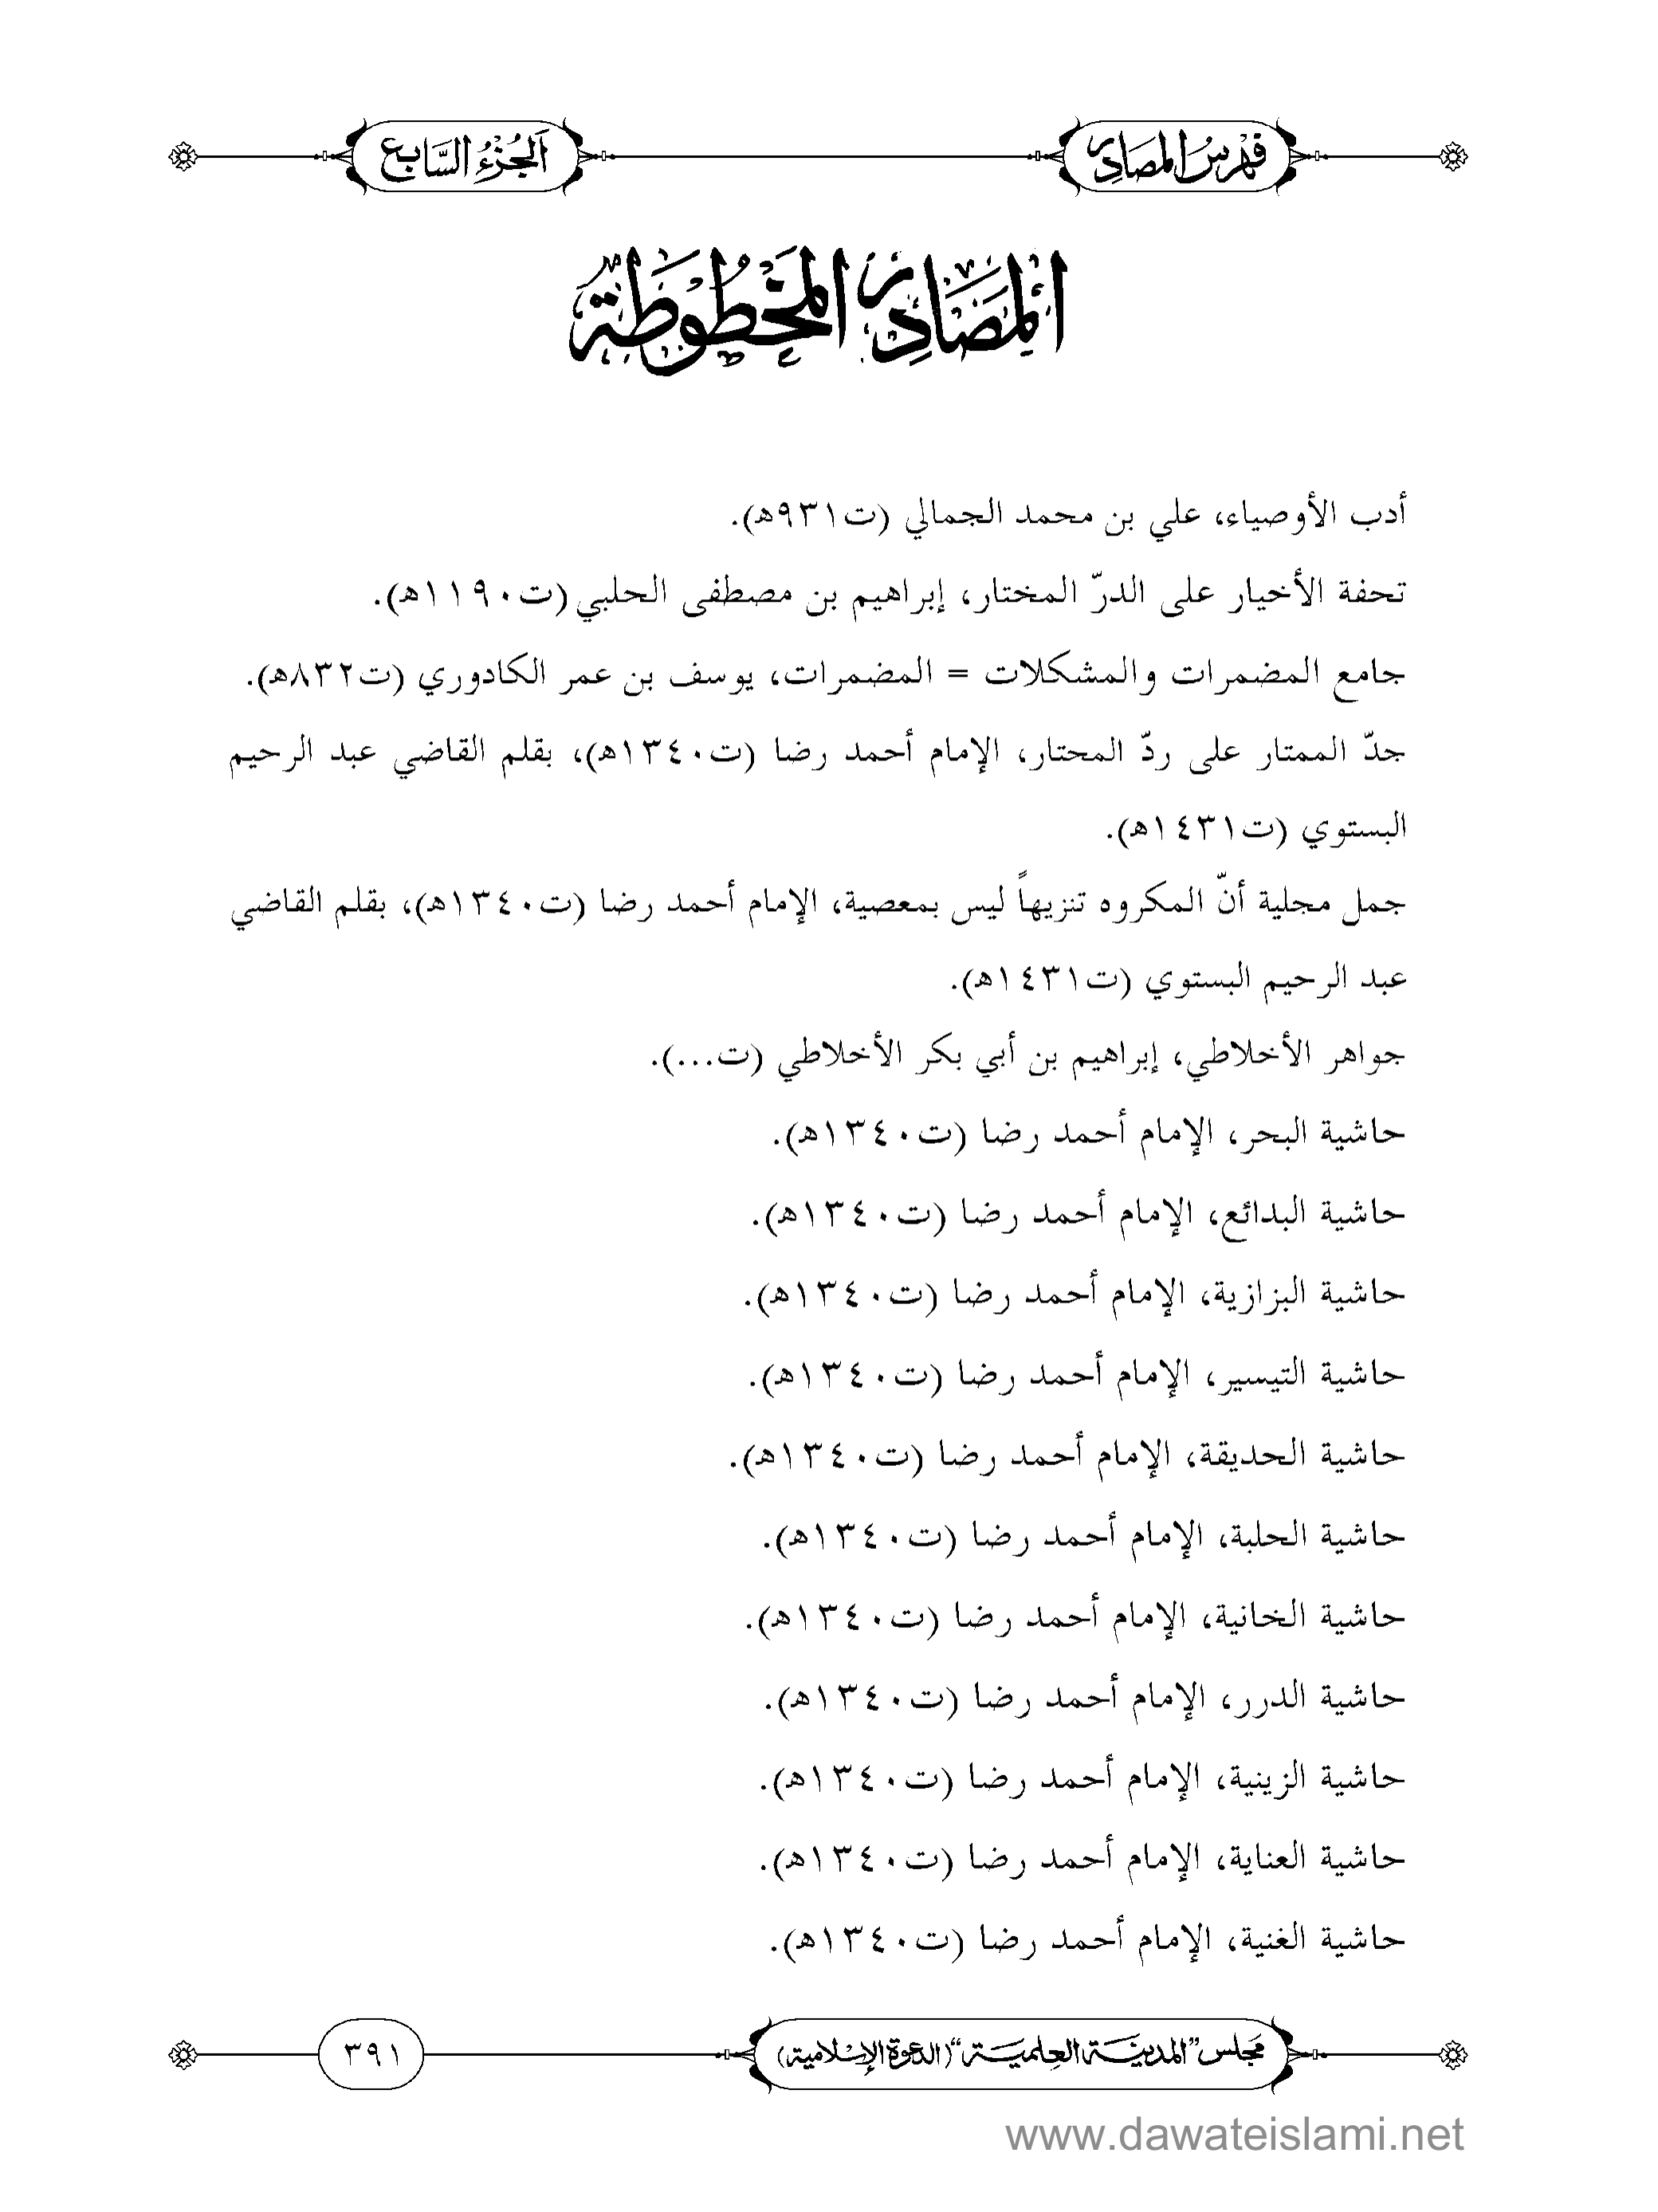 فهرس المصادر
اَلجُزْءُ السَّابِع
المَصَادِرُ المَخْطُوْطَةُ
أدب الأوصياء، علي بن محمد الجمالي (ت٩٣١ه).
تحفة الأخيار على الدرّ المختار، إبراهيم بن مصطفى الحلبي (ت١١٩٠ه).
جامع المضمرات والمشكلات = المضمرات، يوسف بن عمر الكادوري (ت٨٣٢ه).
جدّ الممتار على ردّ المحتار، الإمام أحمد رضا (ت١٣٤٠ه)، بقلم القاضي عبد الرحيم
البستوي (ت١٤٣١ه).
جمل مجلية أنّ المكروه تنزيهاً ليس بمعصية، الإمام أحمد رضا (ت١٣٤٠ه)، بقلم القاضي
عبد الرحيم البستوي (ت١٤٣١ه).
جواهر الأخلاطي، إبراهيم بن أبي بكر الأخلاطي (ت...).
حاشية البحر، الإمام أحمد رضا (ت١٣٤٠ه).
حاشية البدائع، الإمام أحمد رضا (ت١٣٤٠ه).
حاشية البزازية، الإمام أحمد رضا (ت١٣٤٠ه).
حاشية التيسير، الإمام أحمد رضا (ت١٣٤٠ه).
حاشية الحديقة، الإمام أحمد رضا (ت١٣٤٠ه).
حاشية الحلبة، الإمام أحمد رضا (ت١٣٤٠ه).
حاشية الخانية، الإمام أحمد رضا (ت١٣٤٠ه).
حاشية الدرر، الإمام أحمد رضا (ت١٣٤٠ه).
حاشية الزينية، الإمام أحمد رضا (ت١٣٤٠ه).
حاشية العناية، الإمام أحمد رضا (ت١٣٤٠ه).
حاشية الغنية، الإمام أحمد رضا (ت١٣٤٠ه).
مجلس "المدينة العلمية" (الدعوة الإسلامية)
٣٩١
www.dawateislami.net